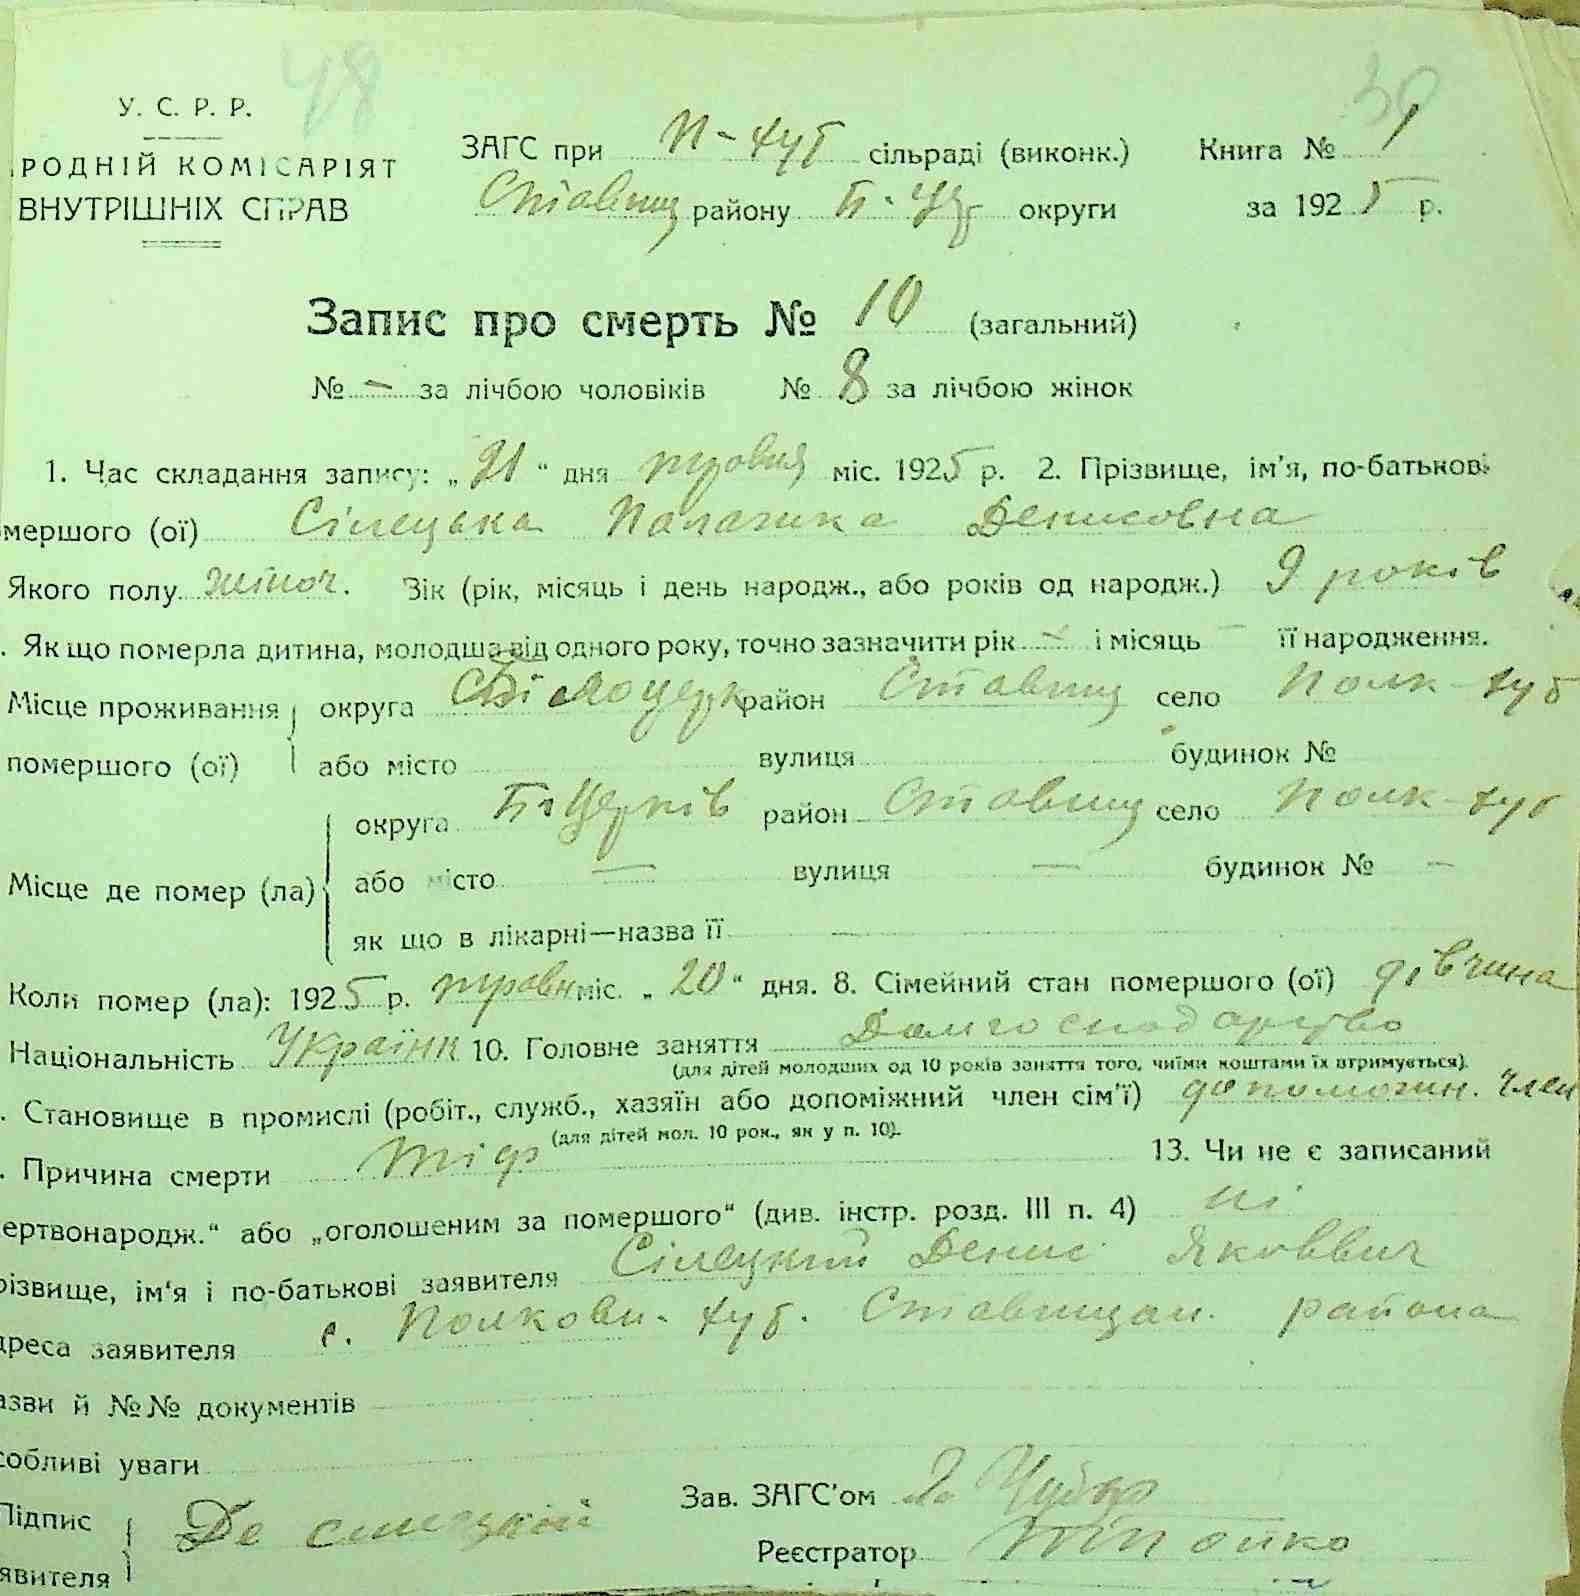 48 30
У. С. Р. Р.
РОДНІЙ КОМІСАРІЯТ
ВНУТРІШНІХ СПРАВ
ЗАГС при П-хут сільраді (виконк.) Книга № 1
Ставищ району Б. Ц. округи за 1925 р.
Запис про смерть № 10 (загальний)
№ – за лічбою чоловіків № 8 за лічбою жінок
1. Час складання запису: „21“ дня травня міс. 1925 р. 2. Прізвище, ім'я, по-батькові
мершого (ої) Сілецька Палажка Денисовна
Якого полу жіноч. Вік (рік, місяць і день народж., або років од народж.) 9 років
. Як що померла дитина, молодша від одного року, точно зазначити рік – і місяць – її народження.
Місце проживання округа Білоцерк район Ставищ село Полк-хут
помершого (ої) або місто вулиця будинок №
округа Б-Церків район Ставищ село Полк-хут
Місце де помер (ла) або місто — вулиця — будинок № –
як що в лікарні—назва її —
Коли помер (ла): 1925 р. травн міс. „20“ дня. 8. Сімейний стан помершого (ої) дівчина
Національність Україн 10. Головне заняття Домгосподарство
(для дітей молодших од 10 років заняття того, чиїми коштами їх втримується).
. Становище в промислі (робіт., служб., хазяїн або допоміжний член сім'ї) допоможн. член
(для дітей мол. 10 рок., як у п. 10).
. Причина смерти тіф 13. Чи не є записаний
ертвонародж.“ або „оголошеним за помершого“ (див. інстр. розд. III п. 4) ні
різвище, ім'я і по-батькові заявителя Сілецький Денис Яковвич
дреса заявителя с. Полкови. хут. Ставищан. района
азви й №№ документів
собливі уваги
Підпис
явителя
Зав. ЗАГС'ом
Реєстратор